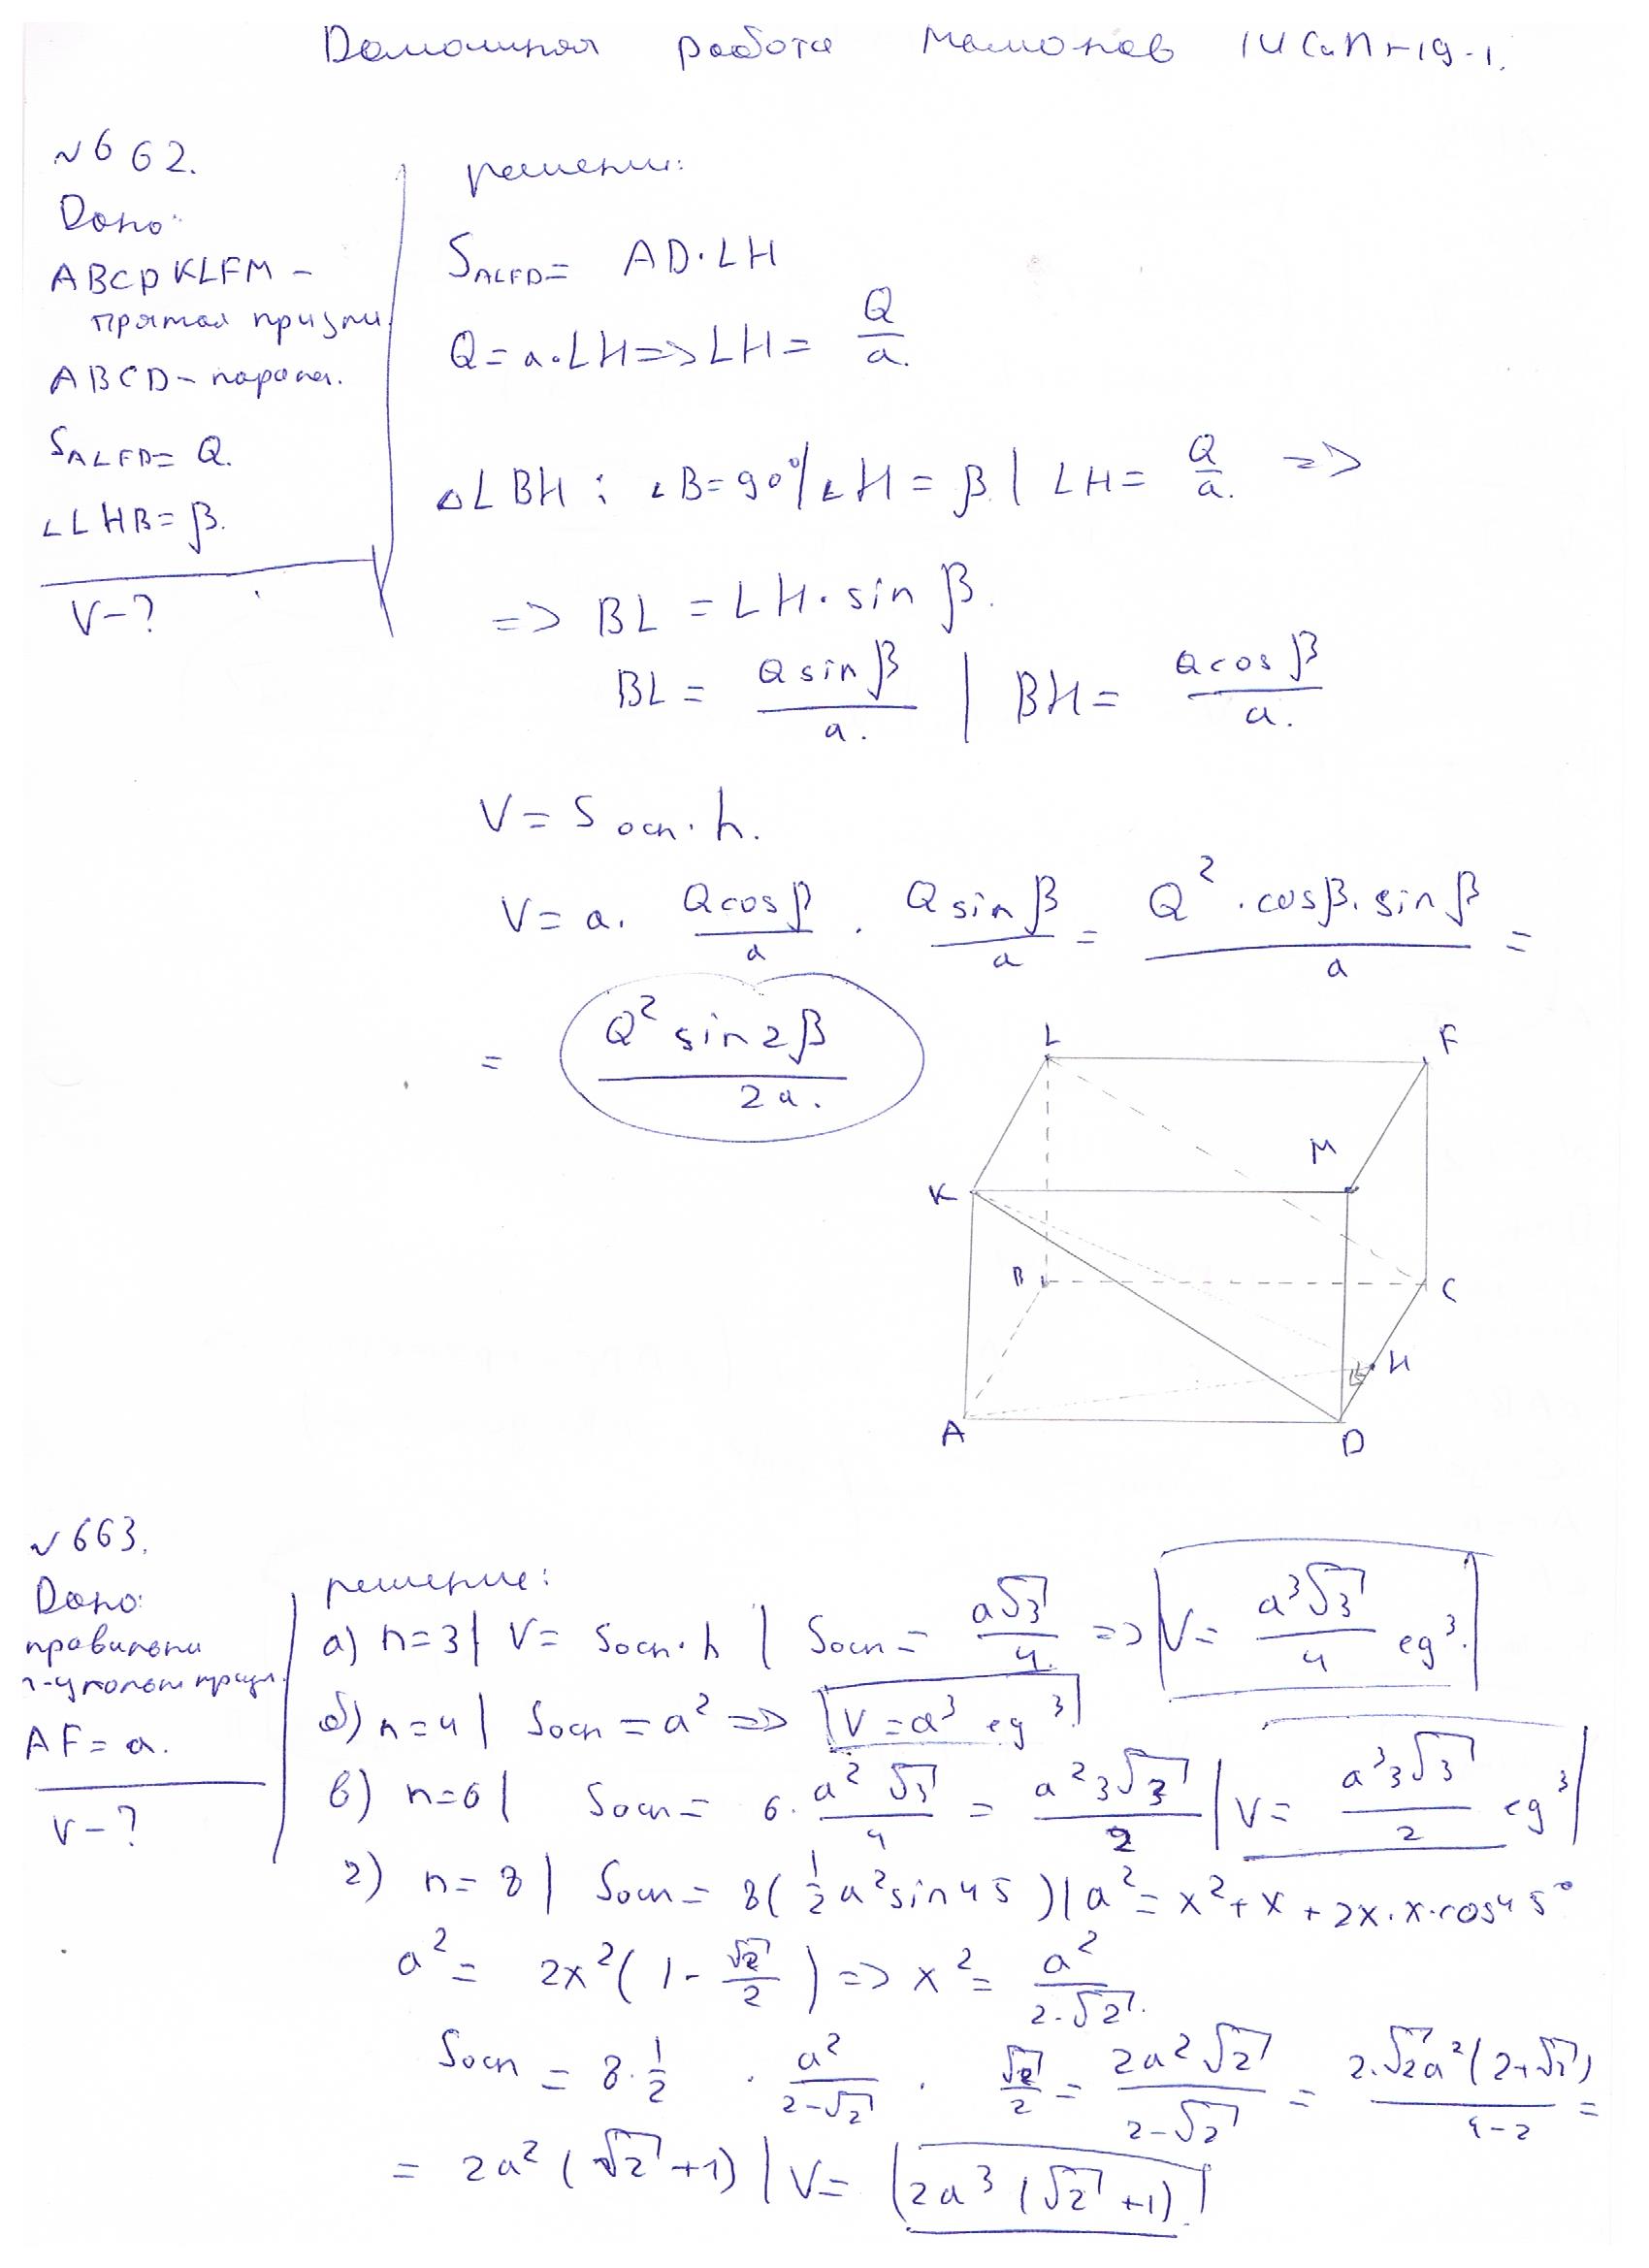 Домашняя работа Мамонов 1ИСиП-19-1.
№662.
Дано:
ABCD KLFM –
прямая призма
ABCD – паралл.
S_ALFD = Q.
∠LHB = β.
V – ?
решение:
S_ALFD = AD·LH
Q = a·LH => LH = Q/a.
△LBH : ∠B = 90° | ∠H = β | LH = Q/a. =>
=> BL = LH·sin β.
BL = Q sin β / a. | BH = Q cos β / a.
V = Sосн·h.
V = a · Q cos β / a · Q sin β / a = Q²·cos β·sin β / a =
= Q² sin 2β / 2a.
L F
M
K
B C
H
A D
№663.
Дано:
правильн
n-угольн призм.
AF = a.
V – ?
решение:
а) n=3 | V = Sосн·h | Sосн = a√3 / 4. => V = a³√3 / 4 ед³.
б) n=4 | Sосн = a² => V = a³ ед³.
в) n=6 | Sосн = 6·a²√3 / 4 = a²3√3 / 2 | V = a³3√3 / 2 ед³
г) n=8 | Sосн = 8(1/2 a² sin 45) | a² = x² + x + 2x·x·cos45°
a² = 2x²(1 - √2/2) => x² = a² / 2-√2.
Sосн = 8·1/2 · a² / 2-√2 · √2/2 = 2a²√2 / 2-√2 = 2·√2a²(2+√2) / 4-2 =
= 2a²(√2+1) | V = 2a³(√2+1)